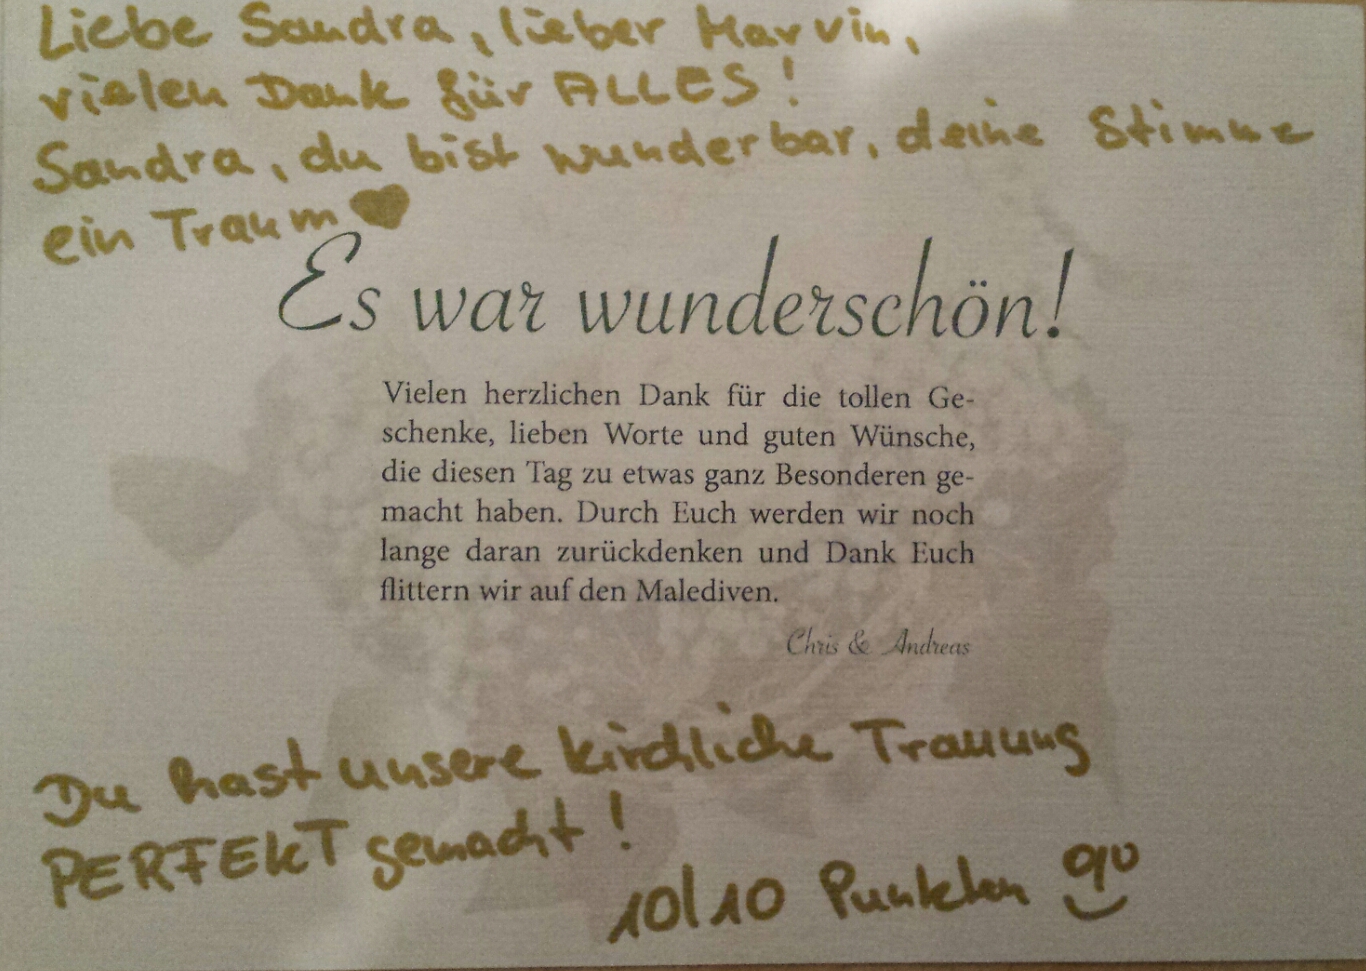 Liebe Sandra, lieber Marvin,
vielen Dank für ALLES!
Sandra, du bist wunderbar, deine Stimme
ein Traum ♥
Es war wunderschön!
Vielen herzlichen Dank für die tollen Ge-
schenke, lieben Worte und guten Wünsche,
die diesen Tag zu etwas ganz Besonderen ge-
macht haben. Durch Euch werden wir noch
lange daran zurückdenken und Dank Euch
flittern wir auf den Malediven.
Chris & Andreas
Du hast unsere kirchliche Trauung
PERFEKT gemacht!
10/10 Punkten